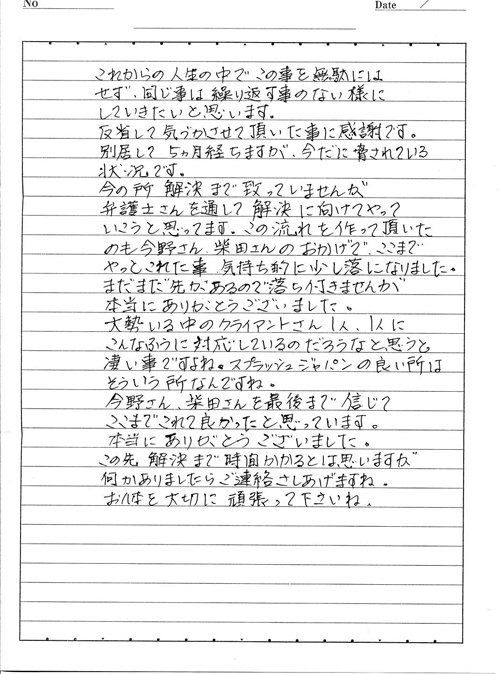 No
Date /
これからの人生の中でこの事を無駄には
せず、同じ事は繰り返す事のない様に
していきたいと思います。
反省して気づかさせて頂いた事に感謝です。
別居して5ヶ月経ちますが、今だに脅されている
状況です。
今の所 解決まで致っていませんが
弁護士さんを通して解決に向けてやって
いこうと思ってます。この流れを作って頂いた
のも今野さん、柴田さんのおかげで、ここまで
やっとこれた事、気持ち的に少し落になりました。
まだまだ先があるので落ち付きませんが
本当にありがとうございました。
大勢いる中のクライアントさん1人、1人に
こんなふうに対応しているのだろうなと思うと
凄い事ですよね。スプラッシュジャパンの良い所は
そういう所なんですね。
今野さん、柴田さんを最後まで信じて
ここまでこれて良かったと思っています。
本当にありがとうございました。
この先 解決まで時間かかるとは思いますが
何かありましたらご連絡さしあげますね。
お体を大切に頑張って下さいね。